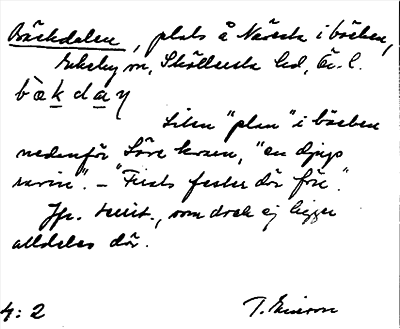 Bäckdalen, plats å Närsta i bäcken,
Ekeby sn, Sköllersta hd, Ör. l.
bàkdaɳ
Liten "plan" i bäcken
nedanför Lövekvarn, "en djup
ravin". – "Firats fester där förr".
Jfr. terit., som dock ej ligger
alldeles där.
4: 2 T. Ericson